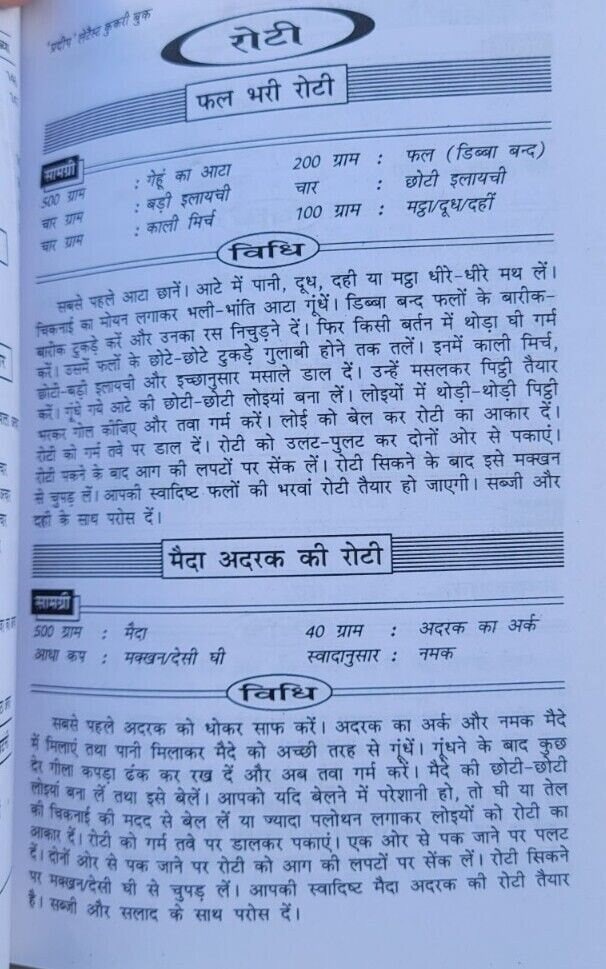 "प्रदीप" लेटैस्ट कुकरी बुक
रोटी
फल भरी रोटी
सामग्री
500 ग्राम : गेहूं का आटा 200 ग्राम : फल (डिब्बा बन्द)
चार ग्राम : बड़ी इलायची चार : छोटी इलायची
चार ग्राम : काली मिर्च 100 ग्राम : मट्ठा/दूध/दहीं
विधि
सबसे पहले आटा छानें। आटे में पानी, दूध, दही या मट्ठा धीरे-धीरे मथ लें।
चिकनाई का मोयन लगाकर भली-भांति आटा गूंधें। डिब्बा बन्द फलों के बारीक-
बारीक टुकड़े करें और उनका रस निचुड़ने दें। फिर किसी बर्तन में थोड़ा घी गर्म
करें। उसमें फलों के छोटे-छोटे टुकड़े गुलाबी होने तक तलें। इनमें काली मिर्च,
छोटी-बड़ी इलायची और इच्छानुसार मसाले डाल दें। उन्हें मसलकर पिट्ठी तैयार
करें। गूंधे गये आटे की छोटी-छोटी लोइयां बना लें। लोइयों में थोड़ी-थोड़ी पिट्ठी
भरकर गोल कीजिए और तवा गर्म करें। लोई को बेल कर रोटी का आकार दें।
रोटी को गर्म तवे पर डाल दें। रोटी को उलट-पुलट कर दोनों ओर से पकाएं।
रोटी पकने के बाद आग की लपटों पर सेंक लें। रोटी सिकने के बाद इसे मक्खन
से चुपड़ लें। आपकी स्वादिष्ट फलों की भरवां रोटी तैयार हो जाएगी। सब्जी और
दही के साथ परोस दें।
मैदा अदरक की रोटी
सामग्री
500 ग्राम : मैदा 40 ग्राम : अदरक का अर्क
आधा कप : मक्खन/देसी घी स्वादानुसार : नमक
विधि
सबसे पहले अदरक को धोकर साफ करें। अदरक का अर्क और नमक मैदे
में मिलाएं तथा पानी मिलाकर मैदे को अच्छी तरह से गूंधें। गूंधने के बाद कुछ
देर गीला कपड़ा ढंक कर रख दें और अब तवा गर्म करें। मैदे की छोटी-छोटी
लोइयां बना लें तथा इसे बेलें। आपको यदि बेलने में परेशानी हो, तो घी या तेल
की चिकनाई की मदद से बेल लें या ज्यादा पलोथन लगाकर लोइयों को रोटी का
आकार दें। रोटी को गर्म तवे पर डालकर पकाएं। एक ओर से पक जाने पर पलट
दें। दोनों ओर से पक जाने पर रोटी को आग की लपटों पर सेंक लें। रोटी सिकने
पर मक्खन/देसी घी से चुपड़ लें। आपकी स्वादिष्ट मैदा अदरक की रोटी तैयार
है। सब्जी और सलाद के साथ परोस दें।